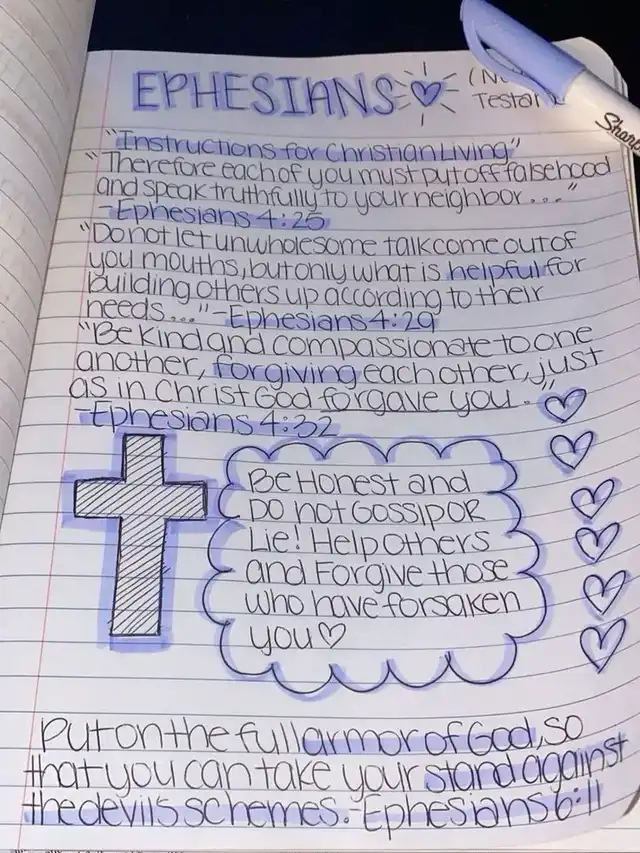 EPHESIANS
Testa
Sharp
"Instructions for Christian Living"
"Therefore each of you must put off falsehood
and speak truthfully to your neighbor..."
-Ephesians 4:25
"Do not let unwholesome talk come out of
you mouths, but only what is helpful for
building others up according to their
needs..." -Ephesians 4:29
"Be kind and compassionate to one
another, forgiving each other, just
as in Christ God forgave you."
-Ephesians 4:32
Be Honest and
DO NOT GOSSIP OR
Lie! Help Others
and Forgive those
who have forsaken
you♡
Put on the full armor of God, so
that you can take your stand against
the devil's schemes.-Ephesians 6:11